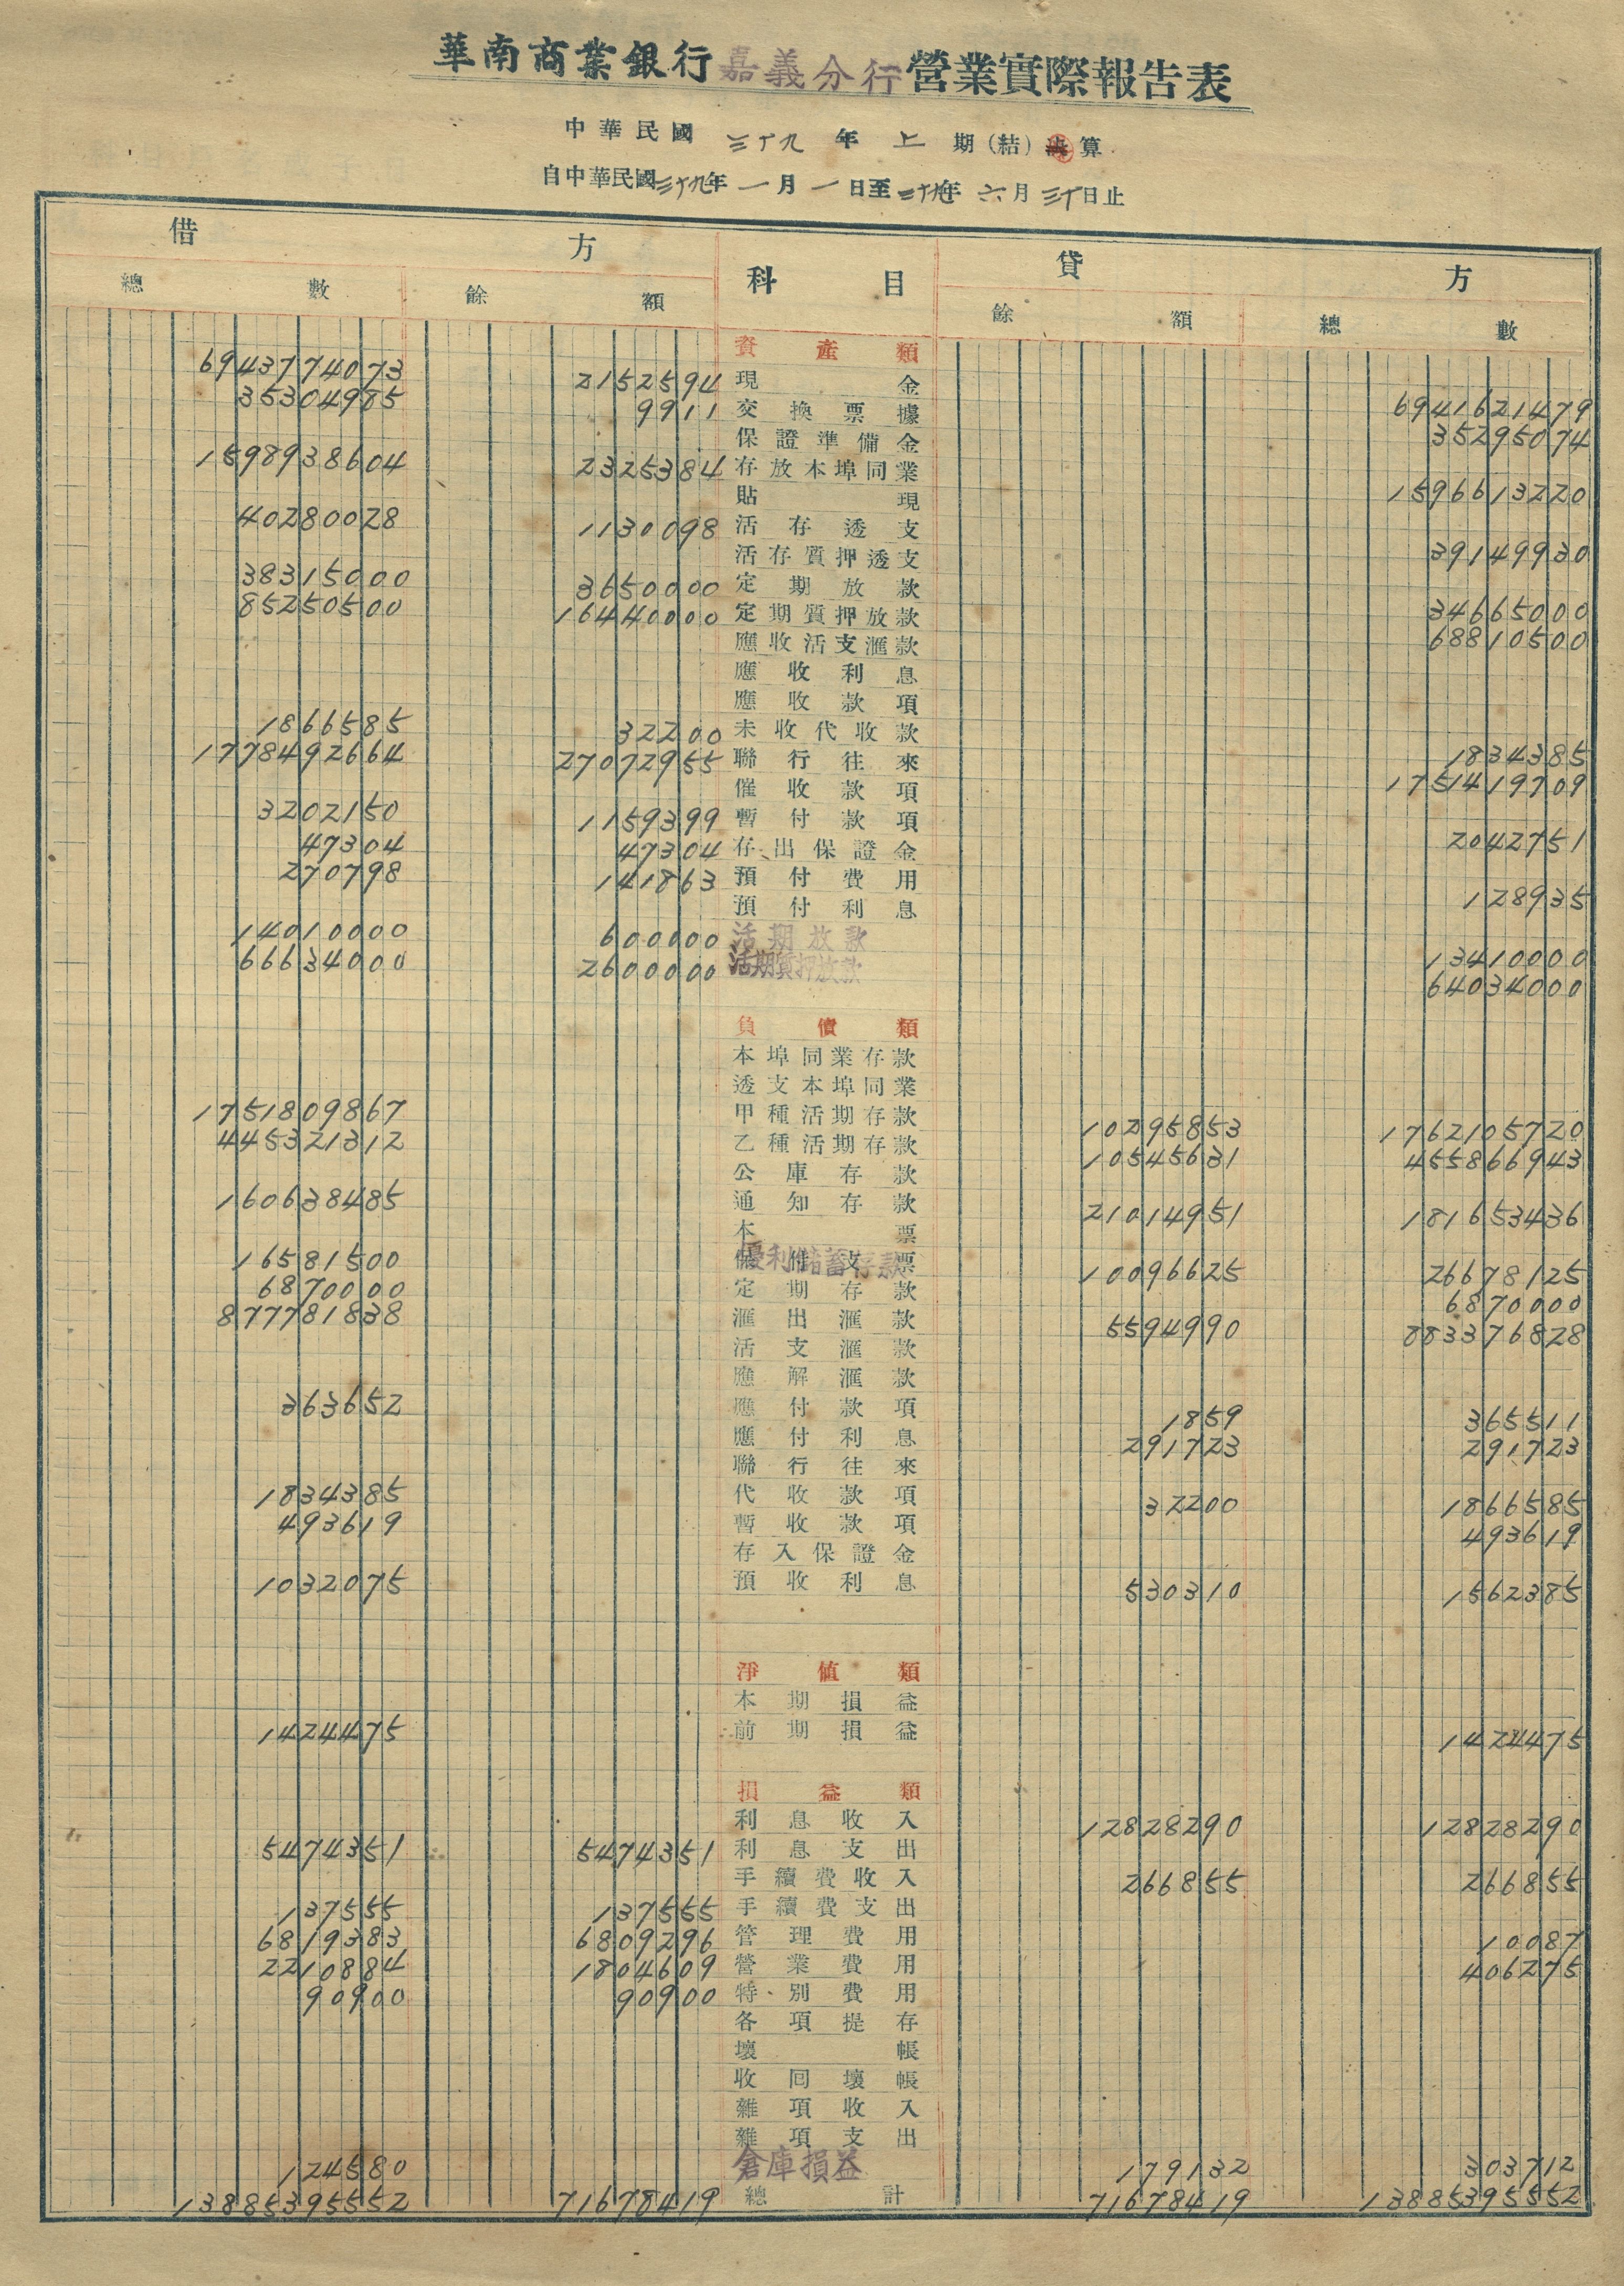 華南商業銀行嘉義分行營業實際報告表
中華民國 三十九 年 上 期(結)算
自中華民國三十九年 一月 一日至三十九年 六月 三十日止
借 方 科 目 貸 方
總 數 餘 額 餘 額 總 數
資 產 類
6943774073 2152594 現 金 6941621479
35304985 9911 交換票據 35295074
保證準備金
1598938604 2325384 存放本埠同業 1596613220
貼 現
40280028 1130098 活存透支 39149930
活存質押透支
38315000 3650000 定期放款 34665000
85250500 16440000 定期質押放款 68810500
應收活支滙款
應收利息
應收款項
1866585 32200 未收代收款 1834385
1778492664 27072955 聯行往來 1751419709
催收款項
3202150 1159399 暫付款項 2042751
47304 47304 存出保證金
270798 141863 預付費用 128935
預付利息
14010000 600000 活期放款 13410000
66634000 2600000 活期質押放款 64034000
負 債 類
本埠同業存款
透支本埠同業
1751809867 甲種活期存款 10295853 1762105720
445321312 乙種活期存款 10545631 455866943
公庫存款
160638485 通知存款 21014951 181653436
本 票
16581500 優利儲蓄存款 10096625 26678125
6870000 定期存款 6870000
877781838 滙出滙款 5594990 883376828
活支滙款
應解滙款
363652 應付款項 1859 365511
應付利息 291723 291723
聯行往來
1834385 代收款項 32200 1866585
493619 暫收款項 493619
存入保證金
1032075 預收利息 530310 1562385
淨 值 類
本期損益
1424475 前期損益 1424475
損 益 類
利息收入 12828290 12828290
5474351 5474351 利息支出
手續費收入 266855 266855
137555 137555 手續費支出
6819383 6809296 管理費用 10087
2210884 1804609 營業費用 406275
90900 90900 特別費用
各項提存
壞 帳
收回壞帳
雜項收入
雜項支出
124580 倉庫損益 179132 303712
13885395552 71678419 總 計 71678419 13885395552